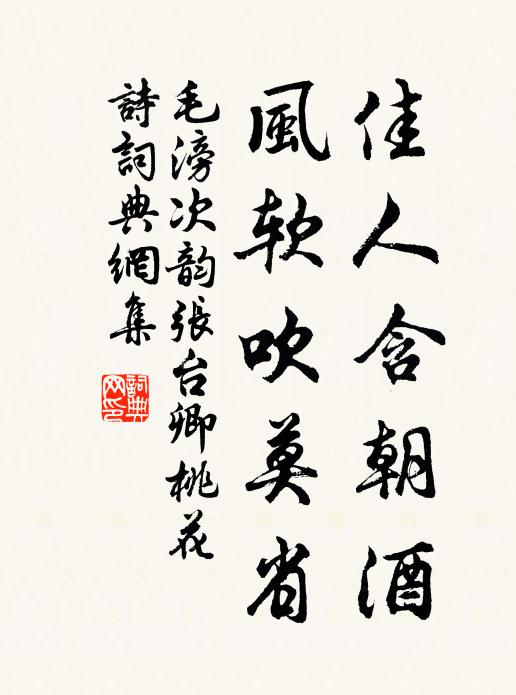 佳人含朝酒
風軟吹莫省
毛滂次韵張台卿桃花
詩詞典網集
詞典
网印